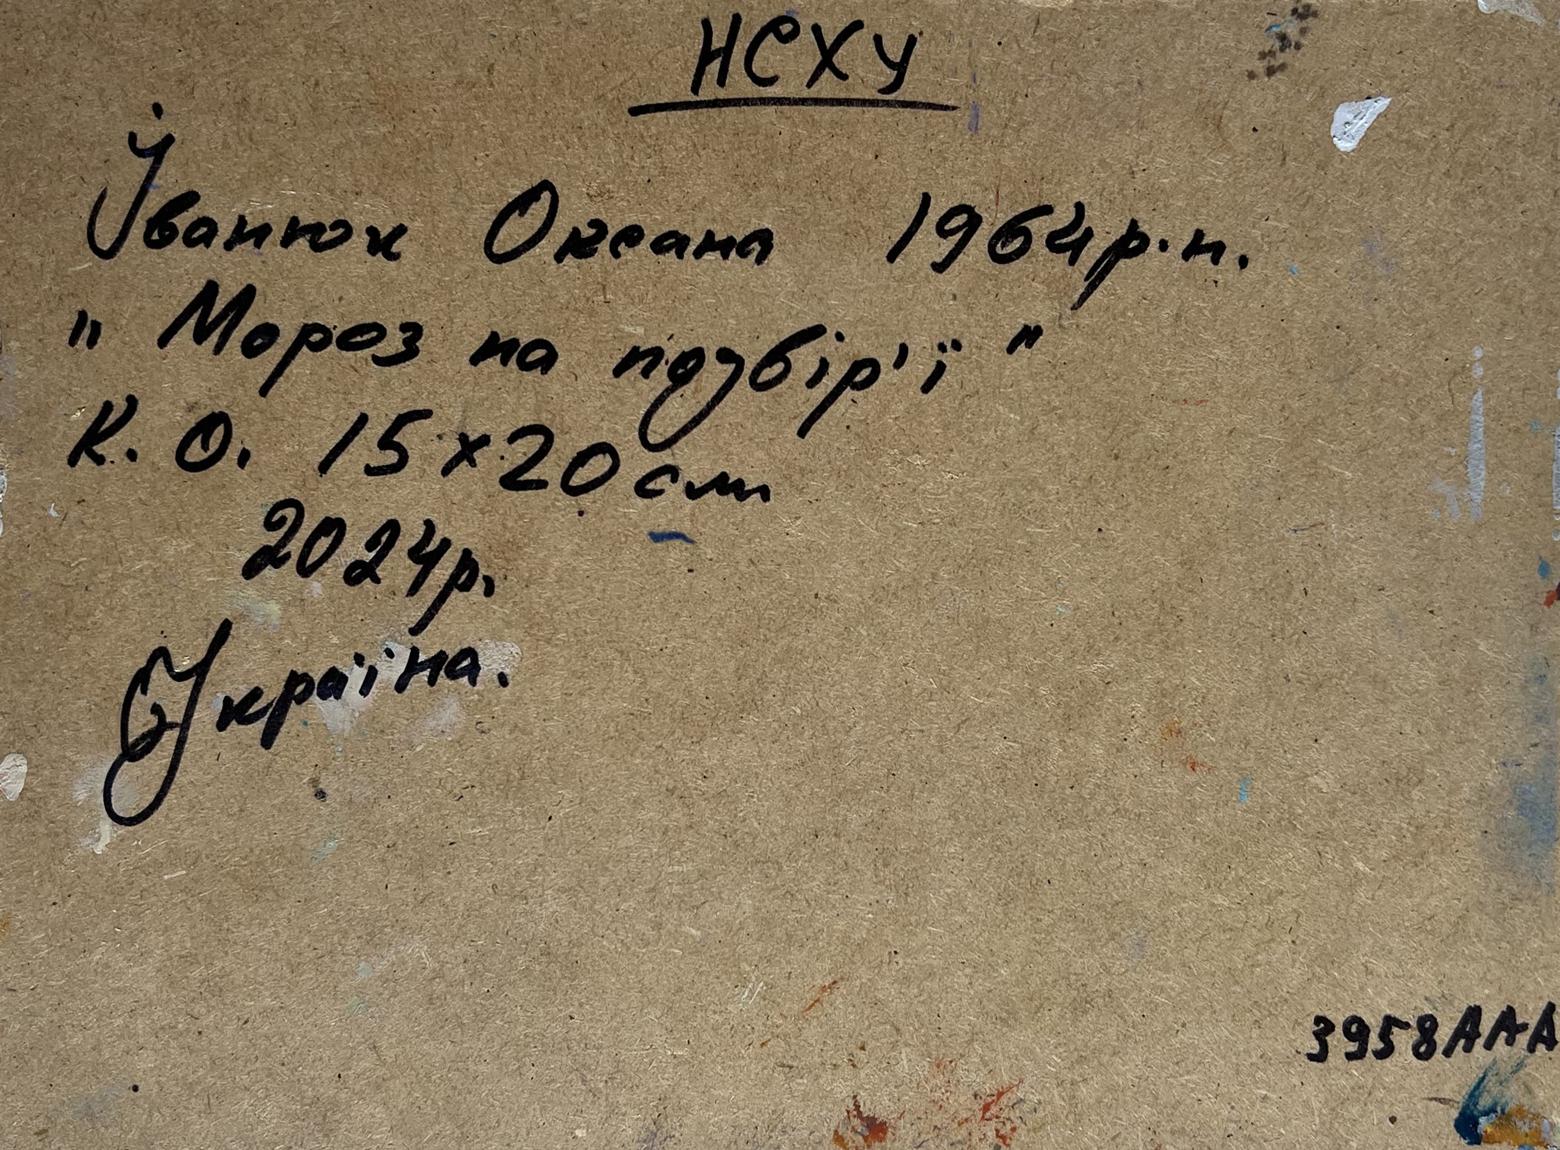 НСХУ
Іванюк Оксана 1964р.н.
"Мороз на подвір'ї"
К.О. 15x20см
2024р.
Україна.
3958AAA